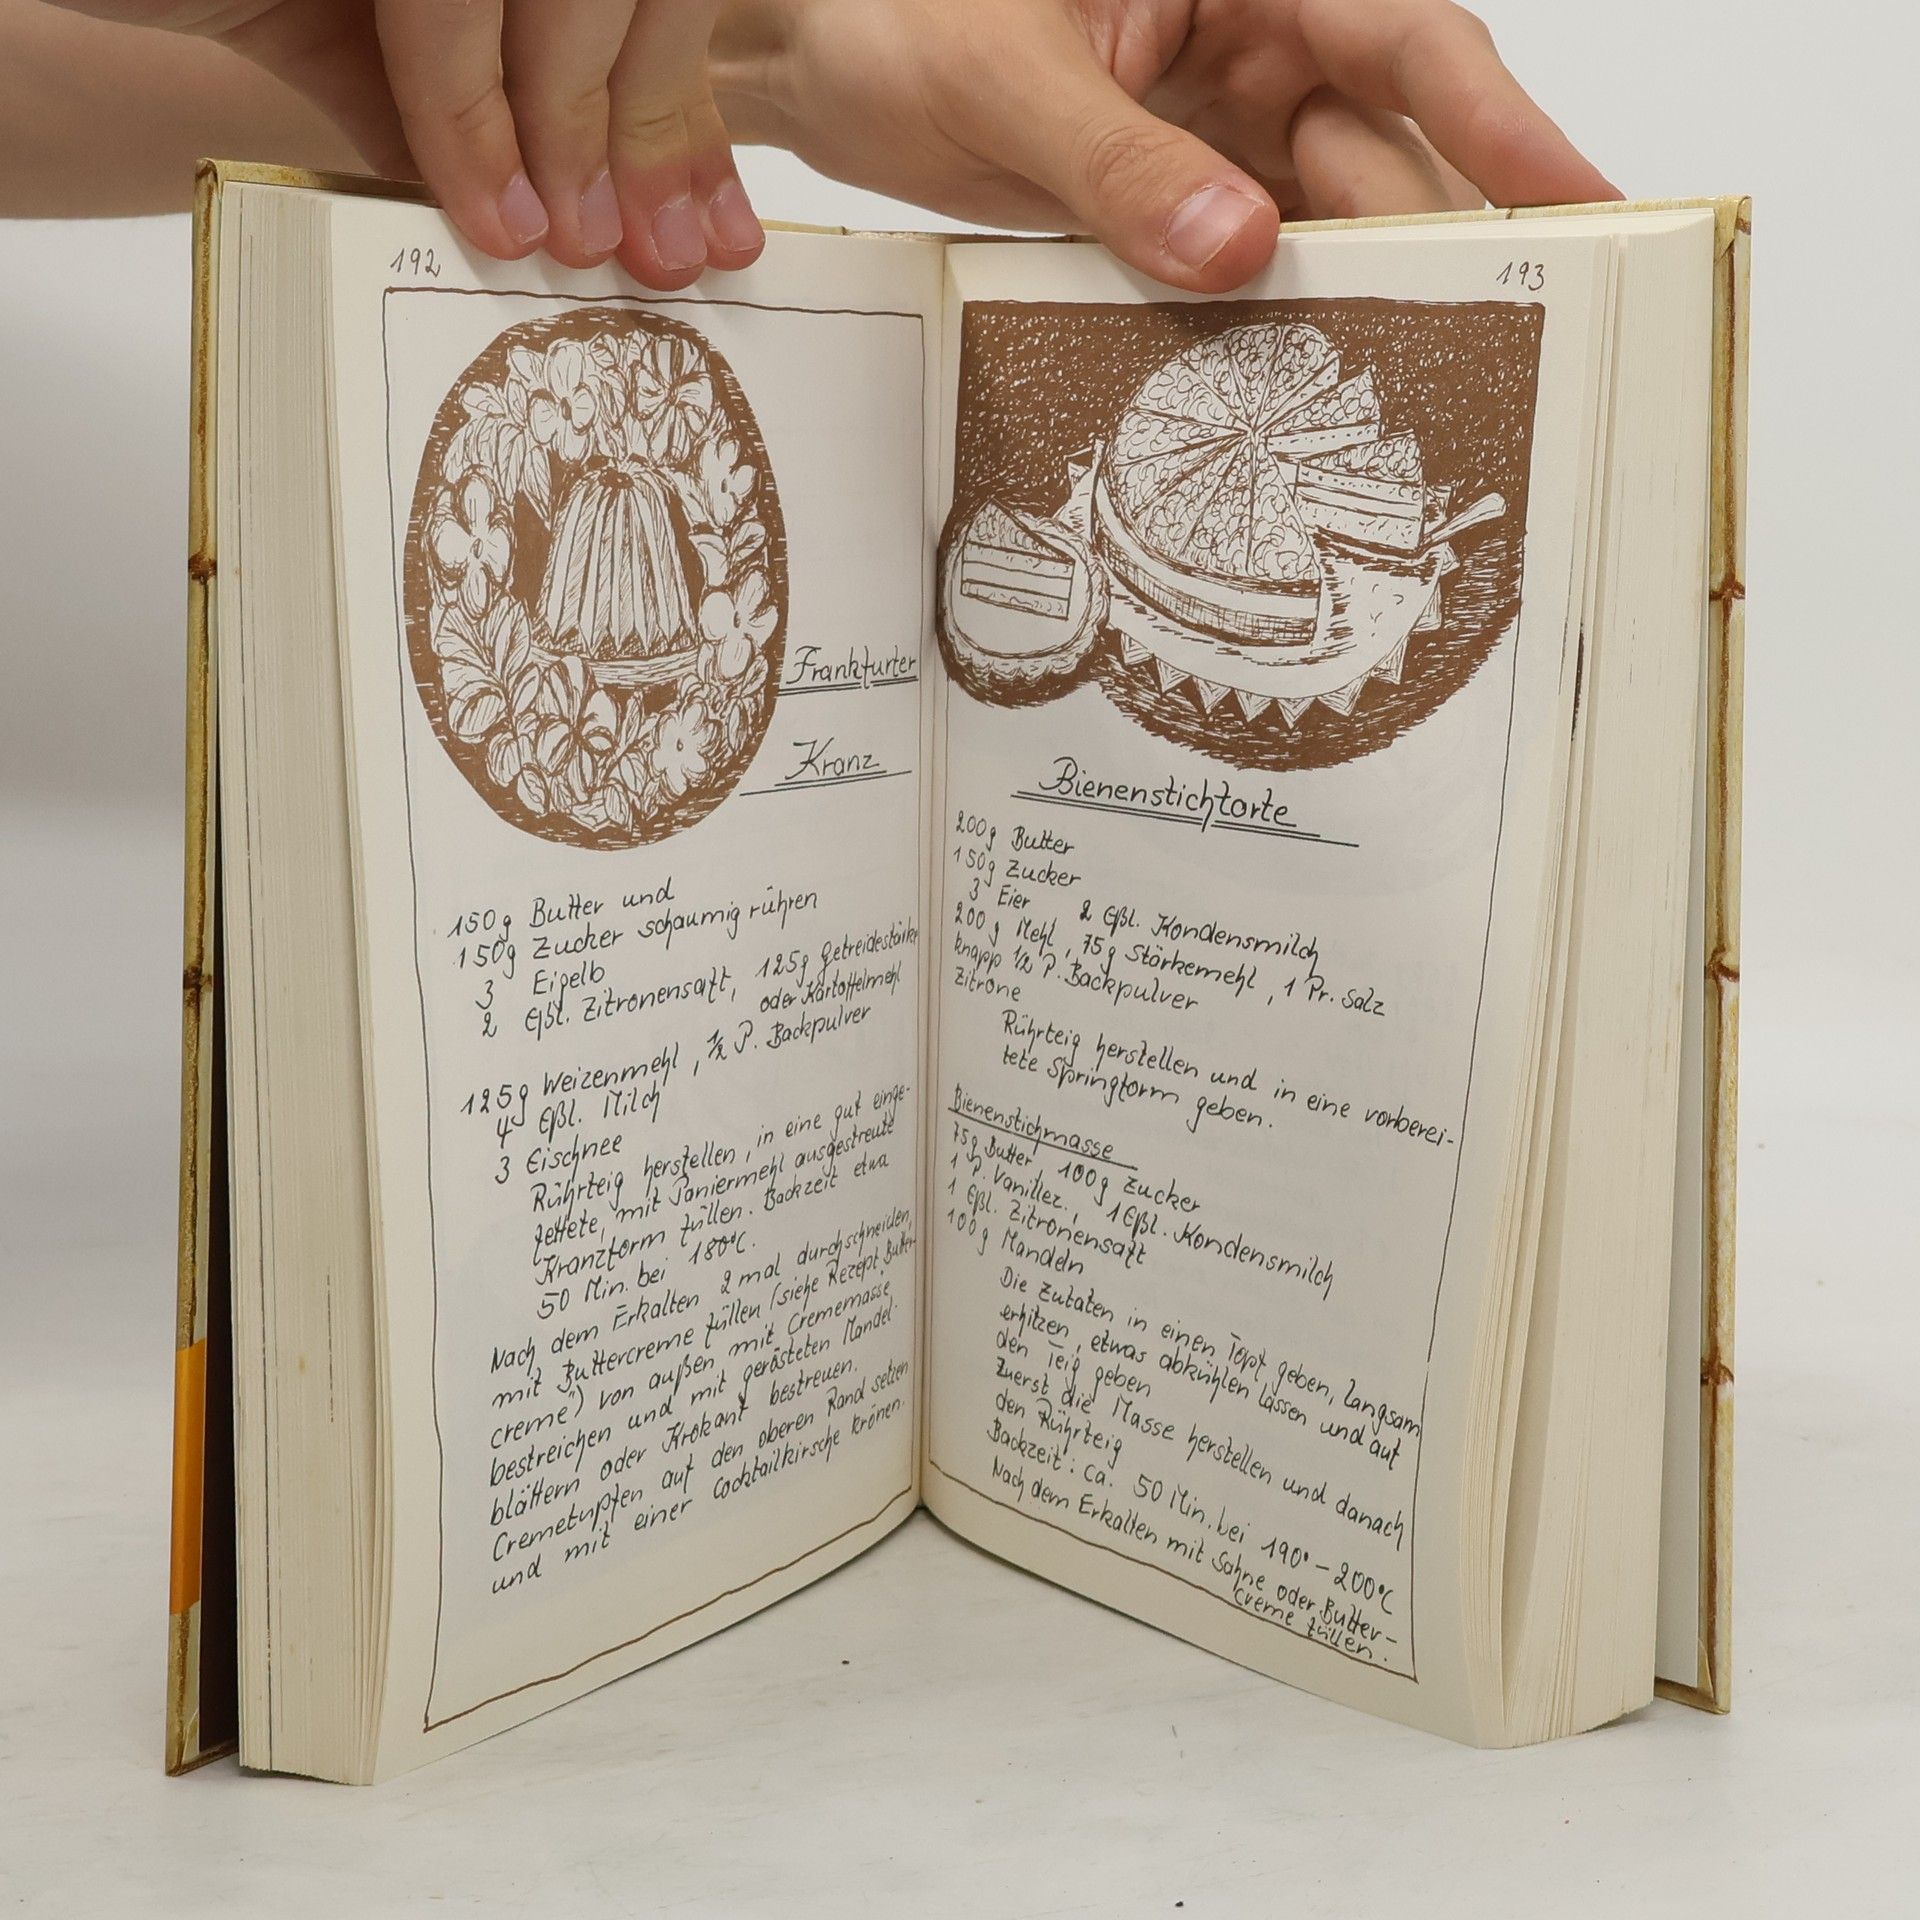 192
Frankfurter
Kranz
150g Butter und
150g Zucker schaumig rühren
3 Eigelb
2 Eßl. Zitronensaft, 125g Getreidestärke
oder Kartoffelmehl
125g Weizenmehl, 1/2 P. Backpulver
4 Eßl. Milch
3 Eischnee
Rührteig herstellen, in eine gut einge-
fettete, mit Paniermehl ausgestreute
Kranzform füllen. Backzeit etwa
50 Min. bei 180°C.
Nach dem Erkalten 2 mal durchschneiden,
mit Buttercreme füllen (siehe Rezept „Butter-
creme") von außen mit Crememasse
bestreichen und mit gerösteten Mandel-
blättern oder Krokant bestreuen.
Cremetupfen auf den oberen Rand setzen
und mit einer Cocktailkirsche krönen.
193
Bienenstichtorte
200g Butter
150g Zucker
3 Eier 2 Eßl. Kondensmilch
200g Mehl, 75g Stärkemehl, 1 Pr. Salz
knapp 1/2 P. Backpulver
Zitrone
Rührteig herstellen und in eine vorberei-
tete Springform geben.
Bienenstichmasse
75g Butter 100g Zucker
1 P. Vanillez., 1 Eßl. Kondensmilch
1 Eßl. Zitronensaft
100g Mandeln
Die Zutaten in einen Topf geben, langsam
erhitzen, etwas abkühlen lassen und auf
den Teig geben
Zuerst die Masse herstellen und danach
den Rührteig
Backzeit: ca. 50 Min. bei 190° - 200°C
Nach dem Erkalten mit Sahne oder Butter-
creme füllen.